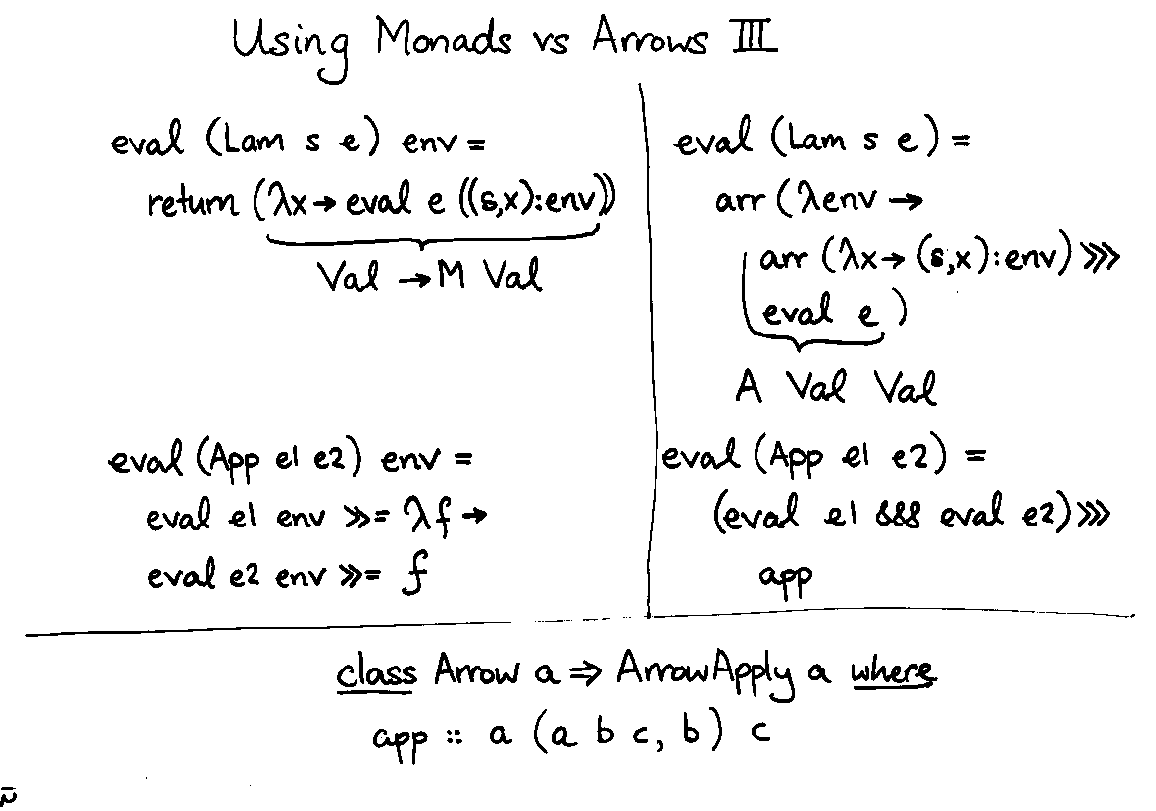 Using Monads vs Arrows III
eval (Lam s e) env =
return (λx → eval e ((s,x):env))
Val → M Val
eval (App e1 e2) env =
eval e1 env >>= λf →
eval e2 env >>= f
eval (Lam s e) =
arr (λenv →
arr (λx → (s,x):env) >>>
eval e )
A Val Val
eval (App e1 e2) =
(eval e1 &&& eval e2) >>>
app
class Arrow a ⇒ ArrowApply a where
app :: a (a b c, b) c